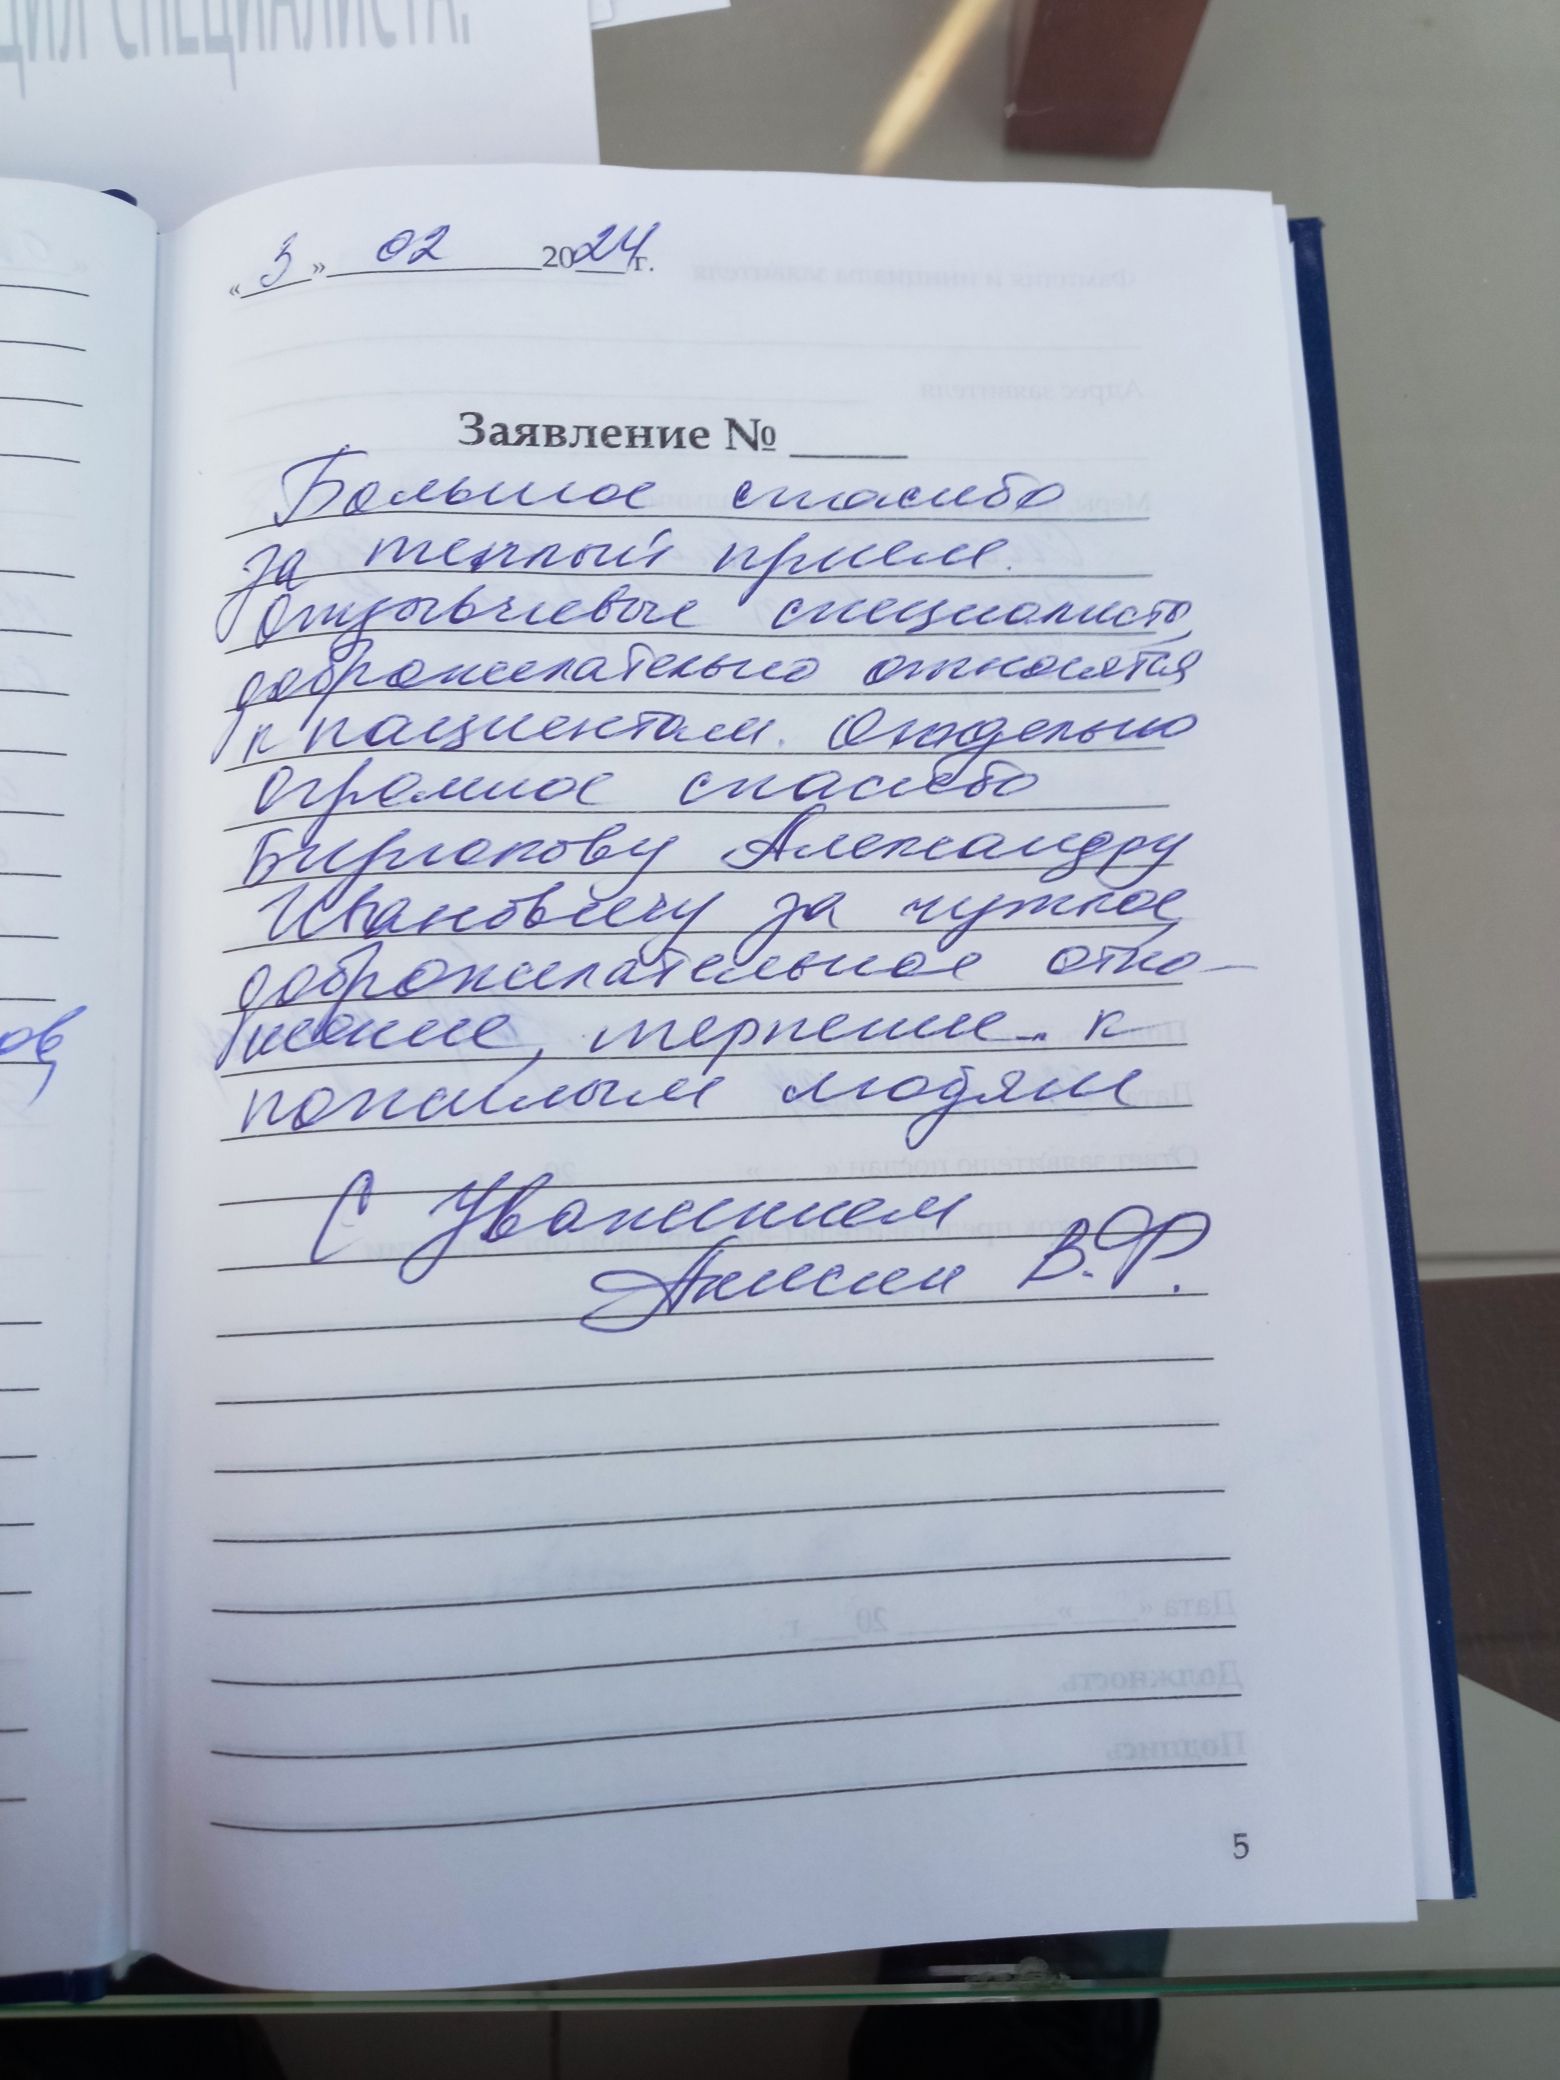 ЦИЯ СПЕЦИАЛИСТА.
« 3 » 02 2024 г.
Заявление №
Большое спасибо
за теплый прием.
Отзывчивые специалисты,
доброжелательно относятся
к пациентам. Отдельно
огромное спасибо
Бирюкову Александру
Ивановичу за чуткое,
доброжелательное отно-
шение, терпение к
пожилым людям
С Уважением
В.Ф.
ов
5